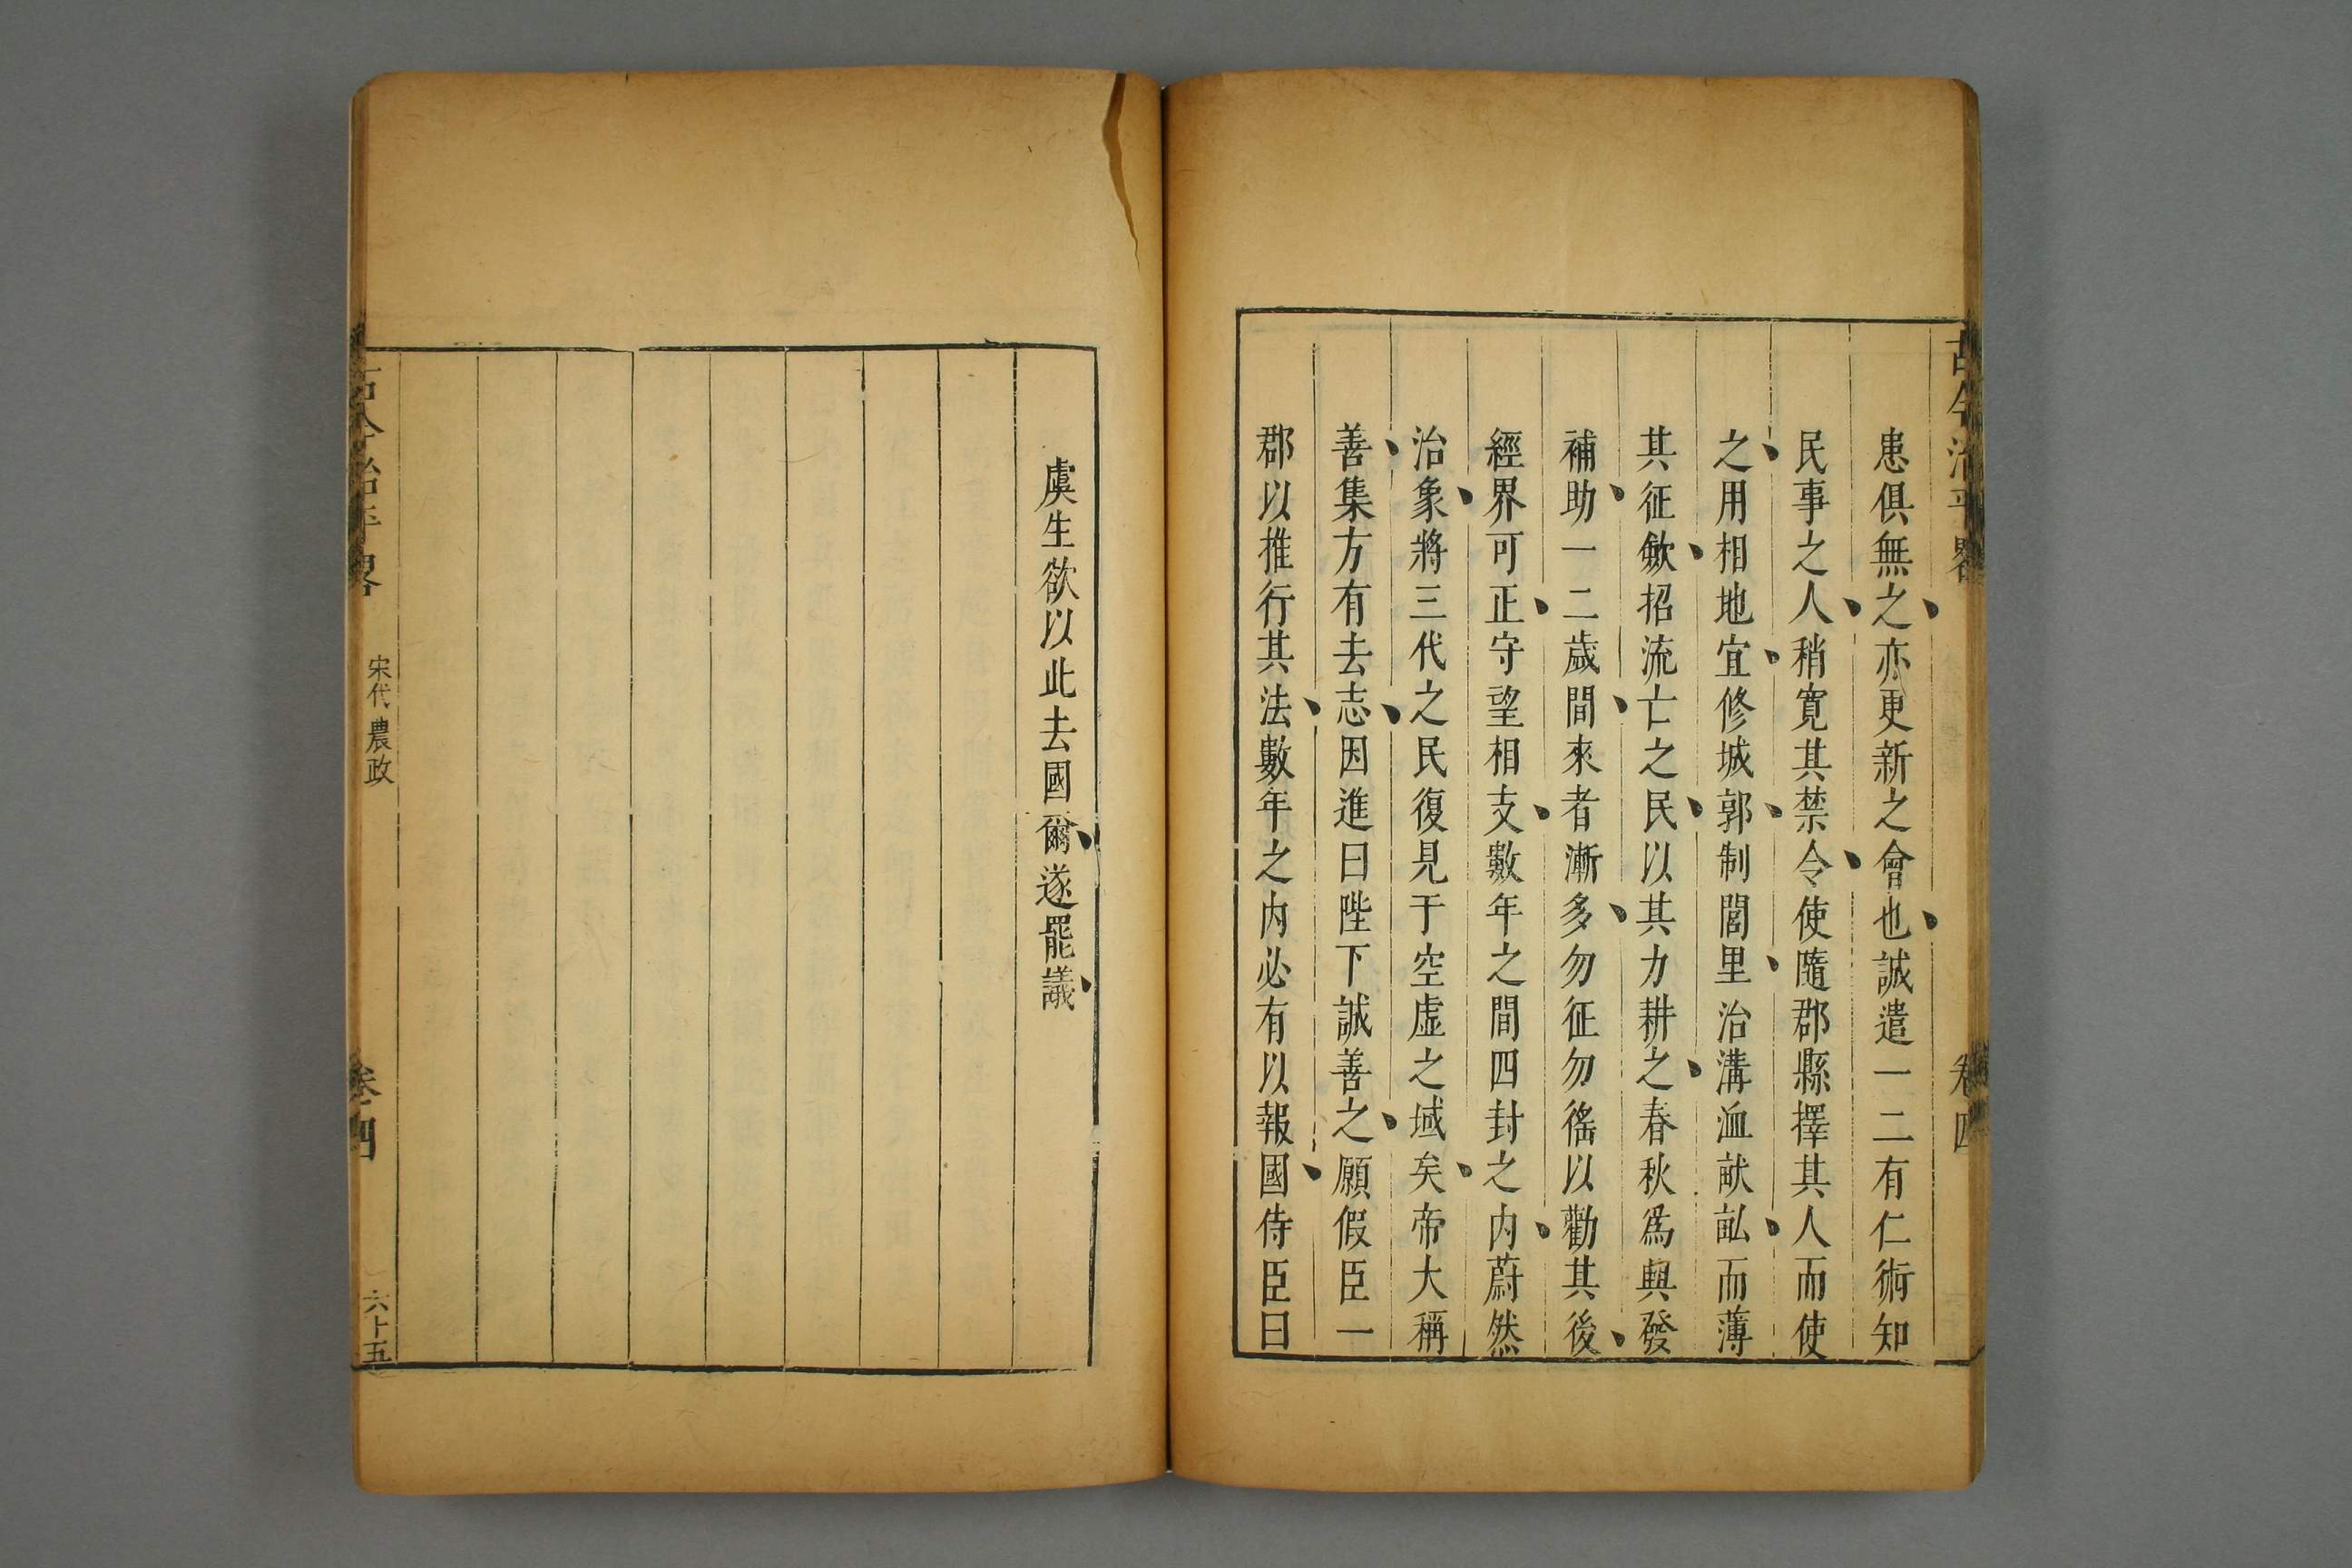 古今治平畧
卷四
患俱無之亦更新之會也誠遣一二有仁術知
民事之人稍寛其禁令使隨郡縣擇其人而使
之用相地宜修城郭制閭里治溝洫畎畆而薄
其征斂招流亡之民以其力耕之春秋爲興發
補助一二歲間來者漸多勿征勿徭以勸其後
經界可正守望相支數年之間四封之内蔚然
治象將三代之民復見于空虛之域矣帝大稱
善集方有去志因進曰陛下誠善之願假臣一
郡以推行其法數年之内必有以報國侍臣曰
虞生欲以此去國爾遂罷議
古今治平畧
宋代農政
卷四
六十五